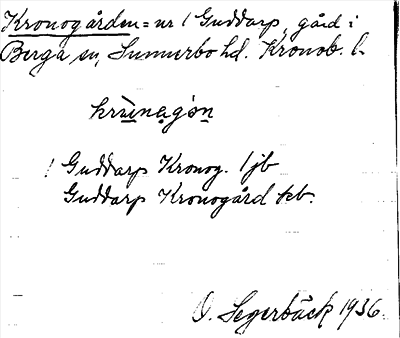 Kronogården = nr 1 Guddarp, gård i
Berga sn, Sunnerbo hd. Kronob. l.
krùnagȯn
! Guddarp Kronog. 1jb
Guddarp Kronogård teb.
O. Segerbäck 1936.